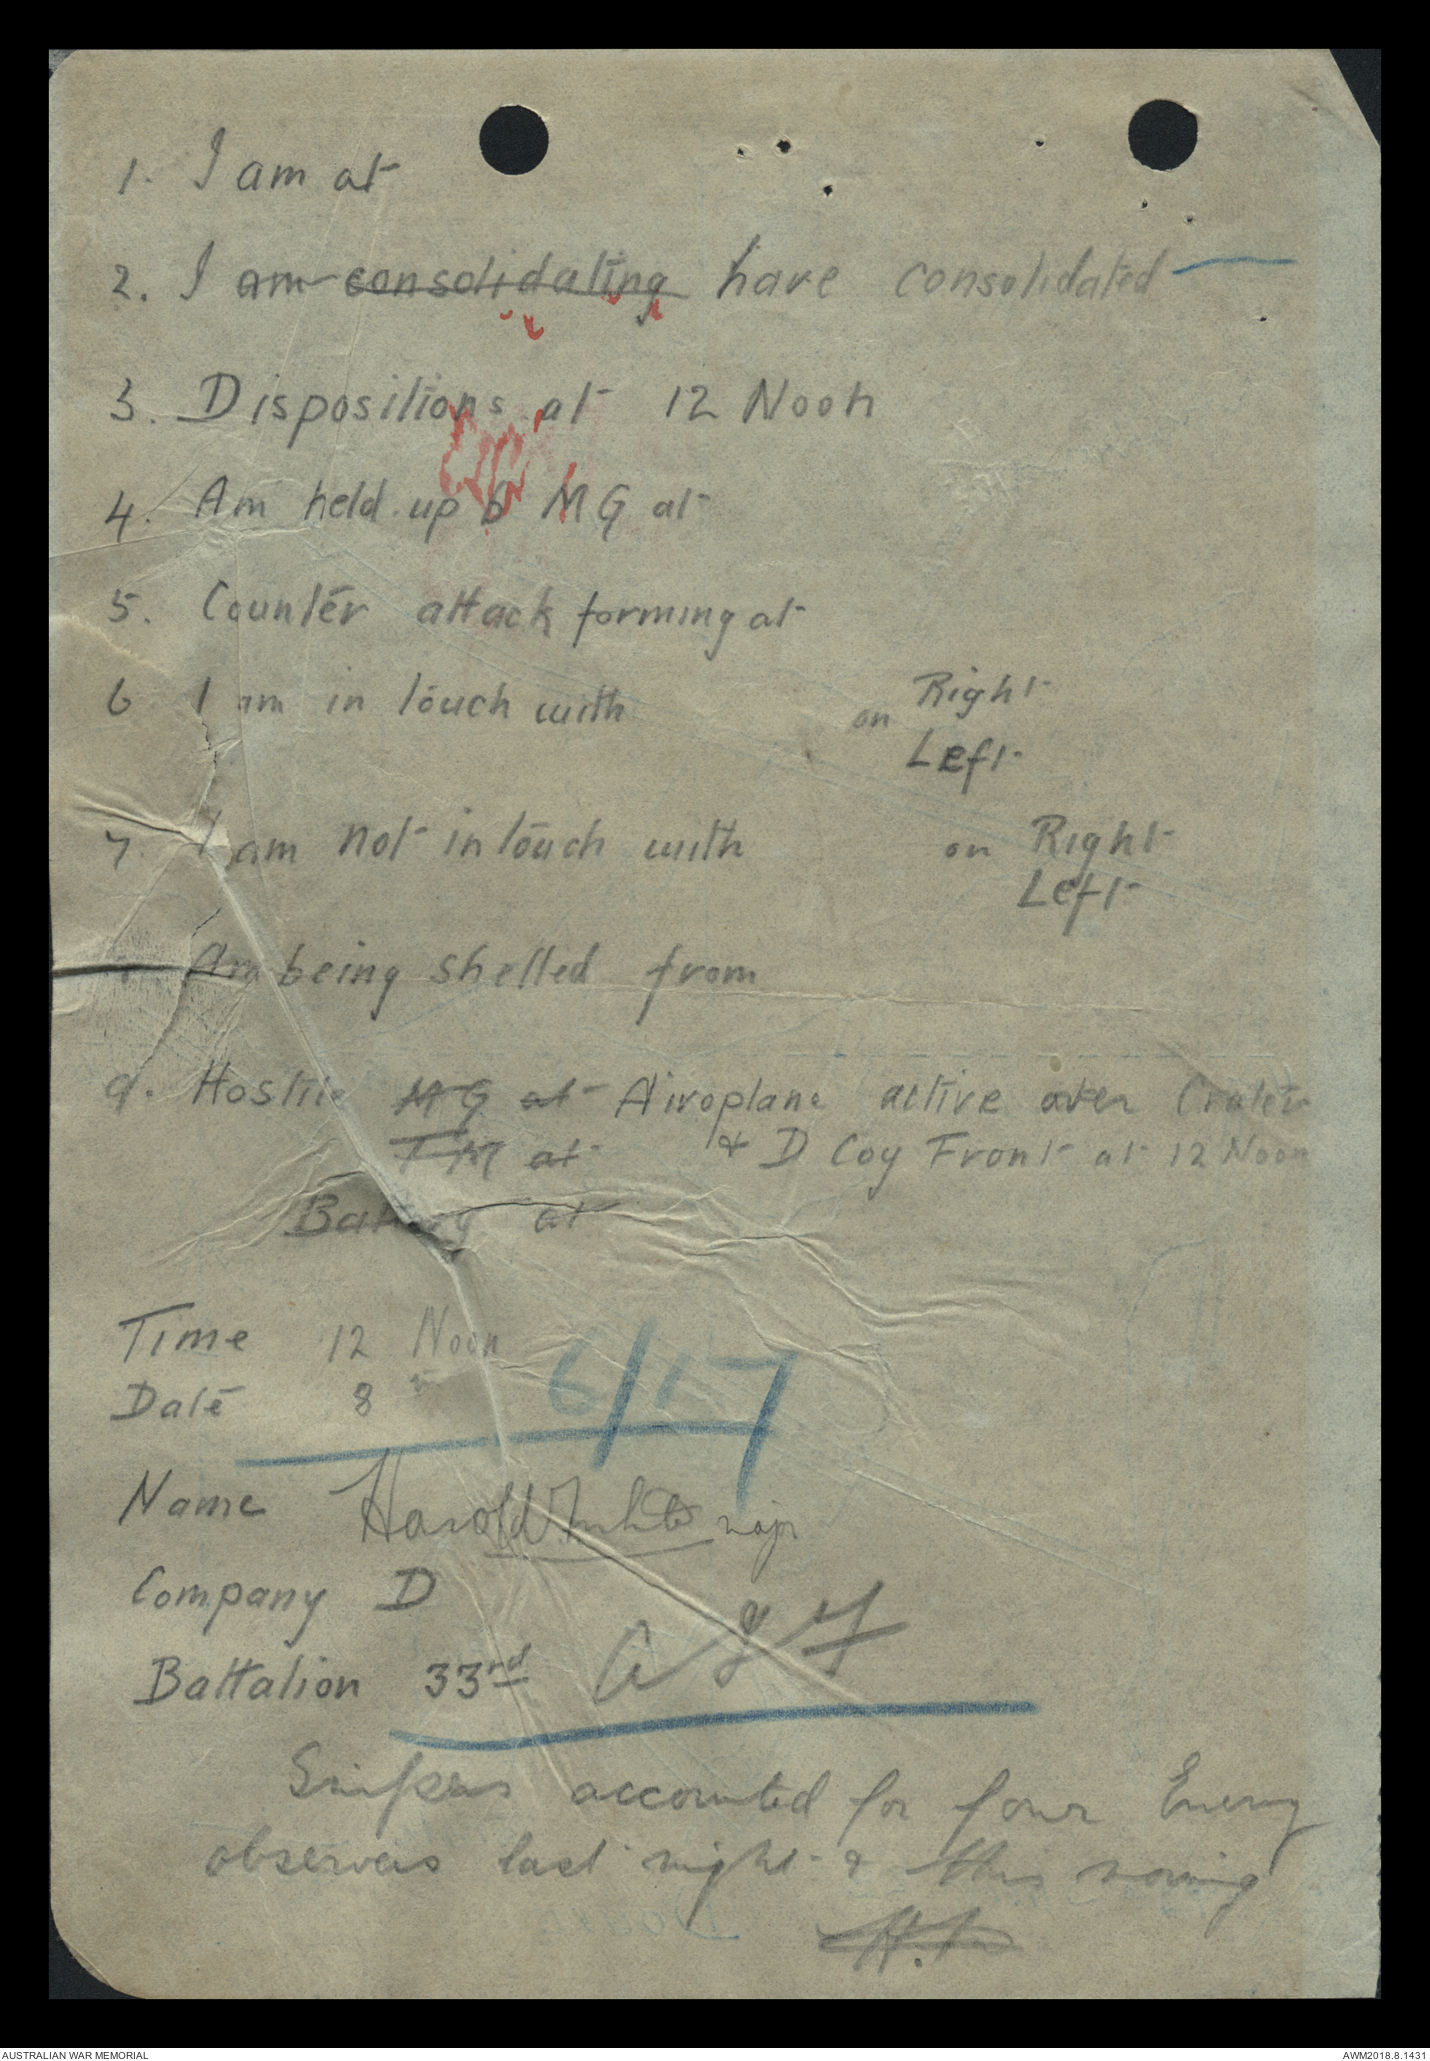 1. I am at
2. I am consolidating have consolidated
3. Dispositions at 12 Noon
4. Am held up b MG at
5. Counter attack forming at
6 I am in touch with on Right
Left
7. I am not in touch with on Right
Left
Am being shelled from
9. Hostile MG at Airoplane active over Crater
TM at & D Coy Front at 12 Noon
Battery at
Time 12 Noon
Date 8th 6/17
Name Harold White major
Company D
Battalion 33rd
Snipers accounted for four Enemy
observers last night & this morning
AUSTRALIAN WAR MEMORIAL
AWM2018.8.1431